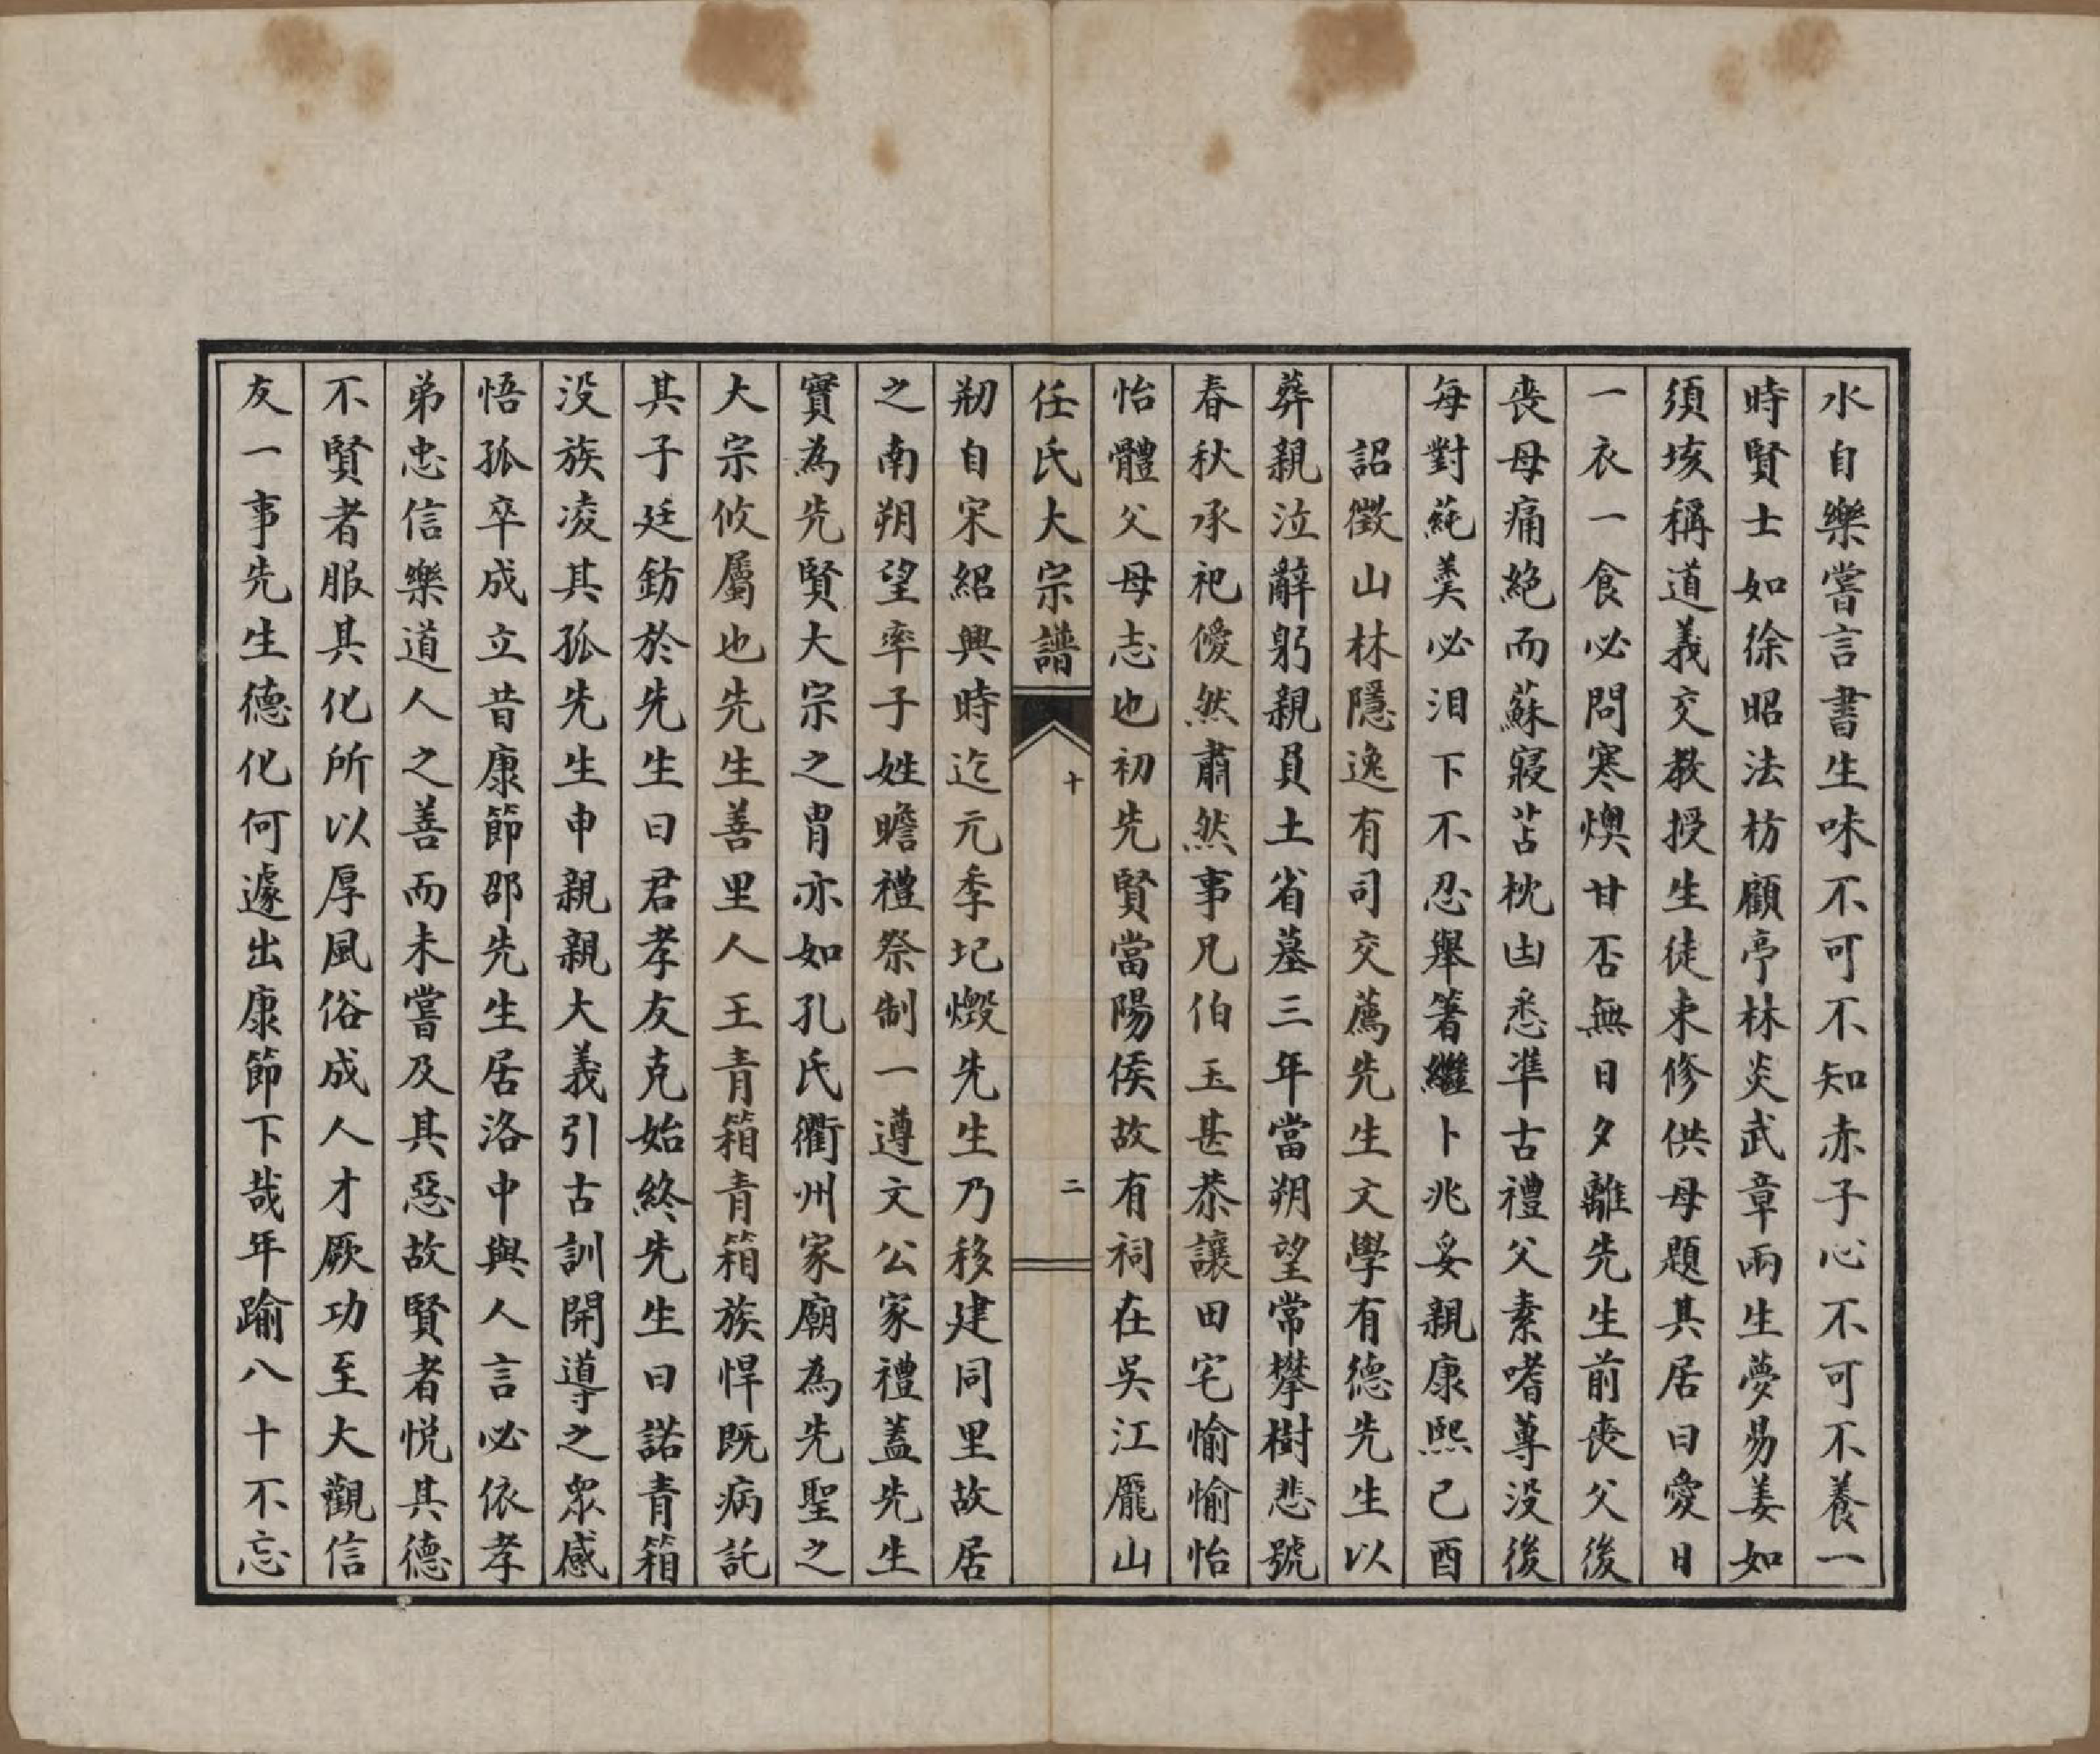 水自樂嘗言書生味不可不知赤子心不可不養一
時賢士如徐昭法枋顧亭林炎武章兩生夢易姜如
須垓稱道義交教授生徒束修供母題其居曰愛日
一衣一食必問寒燠甘否無日夕離先生前喪父後
喪母痛絕而蘇寢苫枕凷悉準古禮父素嗜蓴没後
每對蒓羹必泪下不忍舉箸繼卜兆妥親康熙己酉
詔徵山林隱逸有司交薦先生文學有德先生以
葬親泣辭躬親員土省墓三年當朔望常攀樹悲號
春秋承祀僾然肅然事凡伯玉甚恭讓田宅愉愉怡
怡體父母志也初先賢當陽侯故有祠在吳江龎山
任氏大宗譜
十
二
剏自宋紹興時迄元季圮燬先生乃移建同里故居
之南朔望率子姓瞻禮祭制一遵文公家禮蓋先生
實為先賢大宗之胄亦如孔氏衢州家廟為先聖之
大宗攸屬也先生善里人王青箱青箱族悍既病託
其子廷鈁於先生曰君孝友克始終先生曰諾青箱
没族凌其孤先生申親親大義引古訓開導之眾感
悟孤卒成立昔康節邵先生居洛中與人言必依孝
弟忠信樂道人之善而未嘗及其惡故賢者悅其德
不賢者服其化所以厚風俗成人才厥功至大觀信
友一事先生德化何遽出康節下哉年踰八十不忘